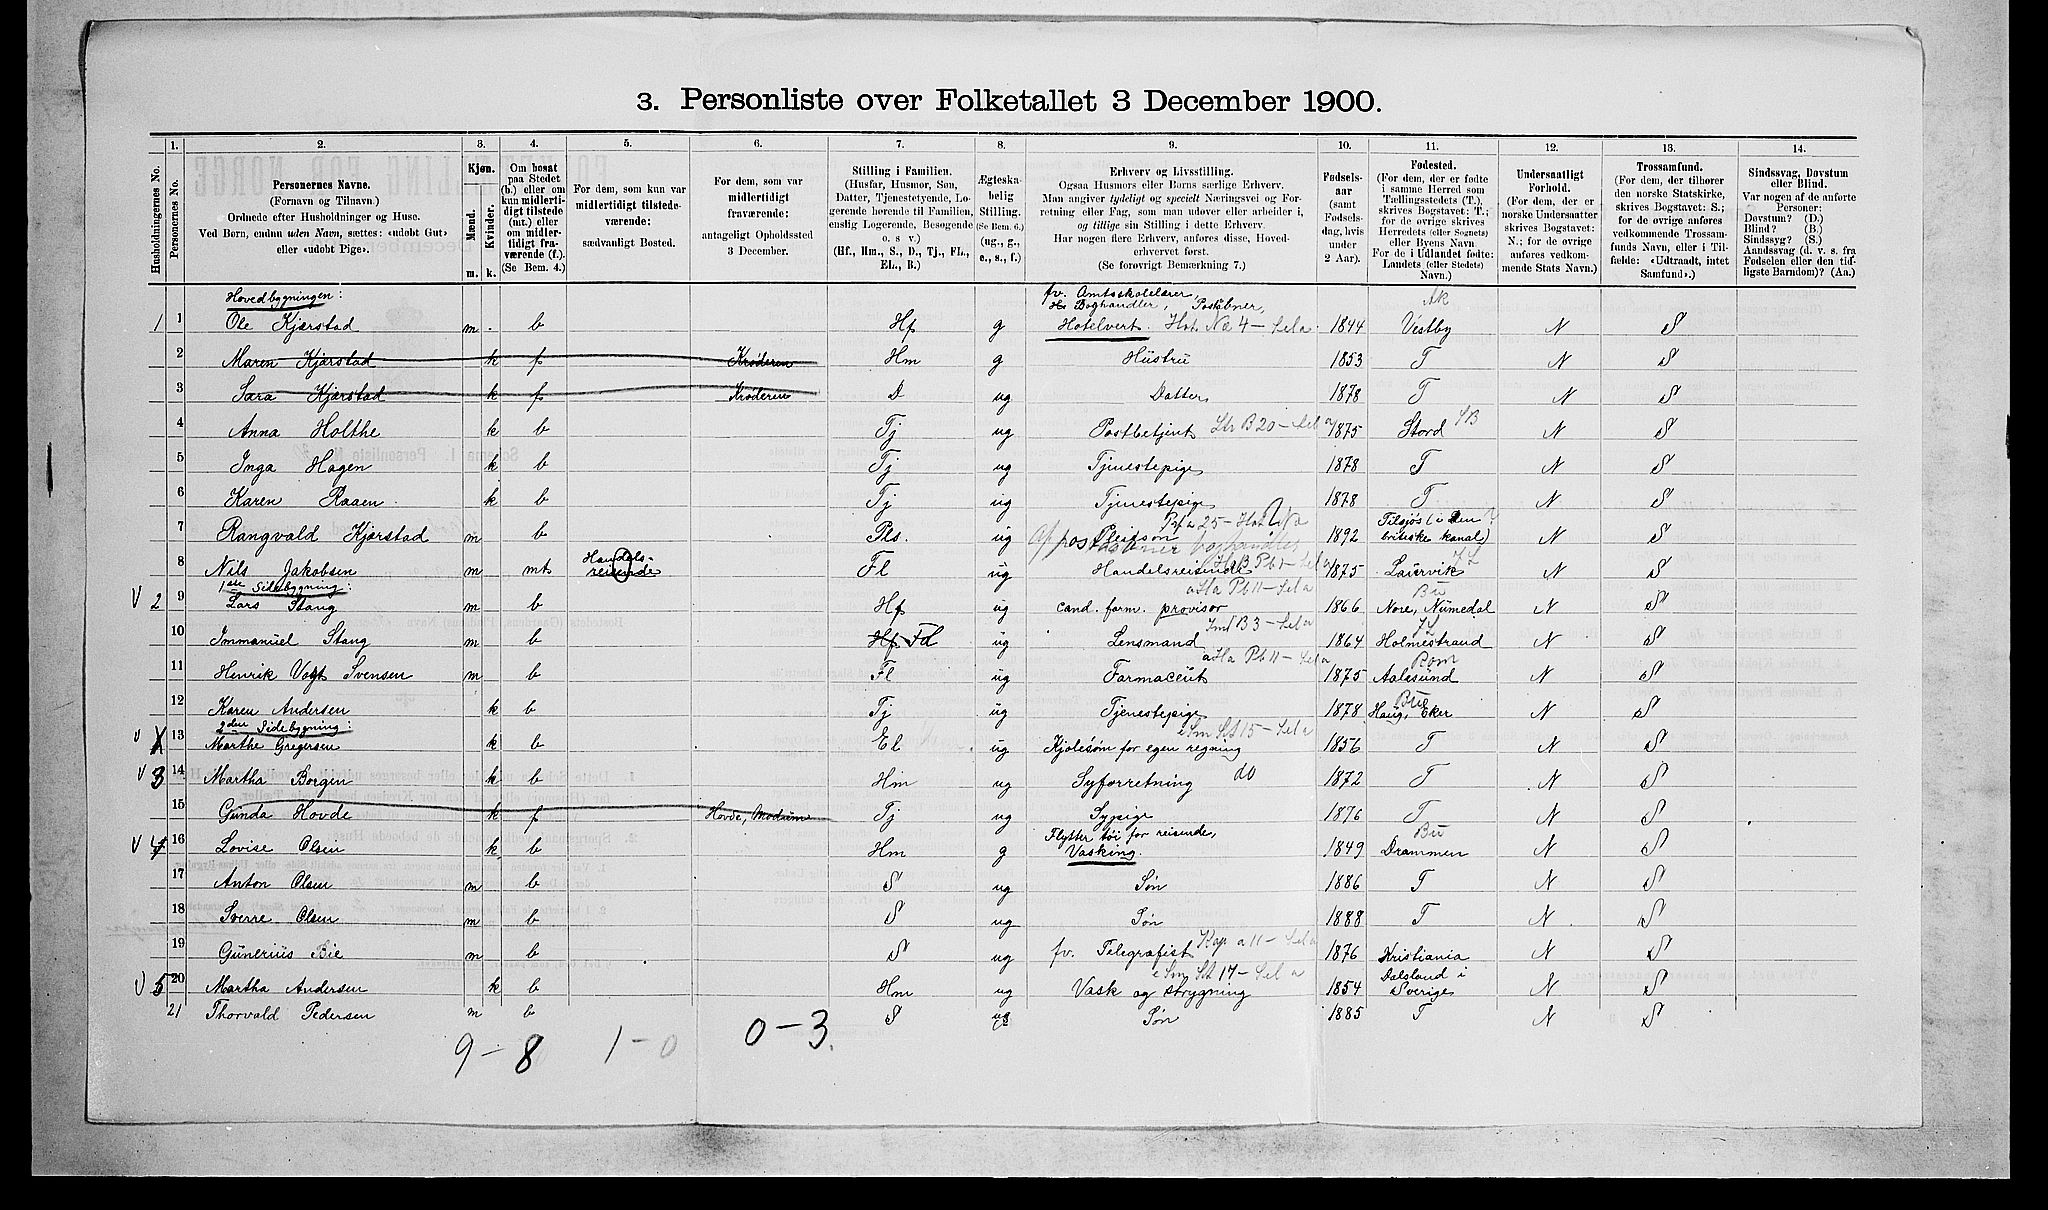 3. Personliste over Folketallet 3 December 1900.
1. 2. 3. 4. 5. 6. 7. 8. 9. 10. 11. 12. 13. 14.
Husholdningernes No.
Personernes No.
Personernes Navne.
(Fornavn og Tilnavn.)
Ordnede efter Husholdninger og Huse.
Ved Børn, endnu uden Navn, sættes: «udøbt Gut»
eller «udøbt Pige».
Kjøn.
Mænd. Kvinder.
m. k.
Om bosat
paa Stedet
(b.) eller om
kun midlerti-
digt tilstede
(mt.) eller
om midler-
tidigt fra-
værende (f.).
(Se Bem. 4.)
For dem, som kun var
midlertidigt tilstede-
værende:
sædvanligt Bosted.
For dem, som var
midlertidigt
fraværende:
antageligt Opholdssted
3 December.
Stilling i Familien.
(Husfar, Husmor, Søn,
Datter, Tjenestetyende, Lo-
gerende hørende til Familien,
enslig Logerende, Besøgende
o. s. v.)
(Hf., Hm., S., D., Tj., FL.,
EL., B.)
Ægteska-
belig
Stilling.
(Se Bem. 6.)
(ug., g.,
e., s., f.)
Erhverv og Livsstilling.
Ogsaa Husmors eller Børns særlige Erhverv.
Man angiver tydeligt og specielt Næringsvei og For-
retning eller Fag, som man udøver eller arbeider i,
og tillige sin Stilling i dette Erhverv.
Har nogen flere Erhverv, anføres disse, Hoved-
erhvervet først.
(Se forøvrigt Bemærkning 7.)
Fødsels-
aar
(samt
Fødsels-
dag, hvis
under
2 Aar).
Fødested.
(For dem, der er fødte
i samme Herred som
Tællingsstedets (T.),
skrives Bogstavet: T.;
for de øvrige skrives
Herredets (eller Sognets)
eller Byens Navn.
For de i Udlandet fødte:
Landets (eller Stedets)
Navn.)
Undersaatligt
Forhold.
(For dem, der er
norske Undersaatter
skrives Bogstavet:
N.; for de øvrige
anføres vedkom-
mende Stats Navn.)
Trossamfund.
(For dem, der tilhører
den norske Statskirke,
skrives Bogstavet: S.;
for de øvrige anføres
vedkommende Trossam-
funds Navn, eller i Til-
fælde: «Udtraadt, intet
Samfund».)
Sindssvag, Døvstum
eller Blind.
Var nogen af de anførte
Personer:
Døvstum? (D.)
Blind? (B.)
Sindssyg? (S.)
Aandssvag (d. v. s. fra
Fødselen eller den tid-
ligste Barndom)? (Aa.)
Hovedbygningen: fv. Amtsskolelærer, Ak
Boghandler, Postaabner,
1 1 Ole Kjørstad m. b Hf g Hotelvert. Hot Na 4 – Sela 1844 Vestby N S
2 Maren Kjørstad k f Krøderen Hm g Hustru 1853 T N S
3 Sara Kjørstad k f Krøderen D ug Datter 1878 T N S
4 Anna Holthe k b Tj ug Postbetjent B 20 – Sela 1875 Stord SB N S
5 Inga Hagen k b Tj ug Tjenestepige 1878 T N S
6 Karen Raaen k b Tj ug Tjenestepige 1878 T N S
7 Rangvald Kjørstad m b Pls. ug Pleiesøn 1892 Tilsjøs (i den britiske kanal) N S
8 Nils Jakobsen m mt Handels-
reisende Fl ug Handelsreisende 1875 Laurvik N S
1ste Sidebygning: a Ha Pb 11 – Sela Bu
V 2 9 Lars Stang m b Hf ug cand. farm. provisor 1866 Nore, Numedal N S
10 Immanuel Stang m b Hf Fl ug Lensmand B 3 – Sela 1864 Holmestrand N S
11 Henrik Vogt Svensen m b Fl ug Farmaceut a Ha Pb 11 – Sela 1875 Aalesund Rom N S
12 Karen Andersen k b Tj ug Tjenestepige 1878 Haug, Eker Bu N S
2den Sidebygning: Sm St 15 – Sela
V 13 Marthe Gregersen k b El ug Kjolesøm for egen regning 1856 T N S
V 3 14 Martha Borgen k b Hm ug Syforretning do 1872 T N S
15 Gunda Hovde k f Hovde, Modum Tj ug Sypige 1876 T N S
Flytter tøi for reisende, Bu
V 4 16 Lovise Olsen k b Hm g Vasking. 1849 Drammen N S
17 Anton Olsen m b S ug Søn 1886 T N S
18 Sverre Olsen m b S ug Søn 1888 T N S
19 Gunerius Bie m b S ug fv. Telegrafist Kop a 11 – Sela 1876 Kristiania N S
Sm St 17 – Sela
V 5 20 Martha Andersen k b Hm ug Vask og strygning 1854 Dalsland i Sverige N S
21 Thorvald Pedersen m b S ug Søn 1885 T N S
9 – 8 1 – 0 0 – 3.